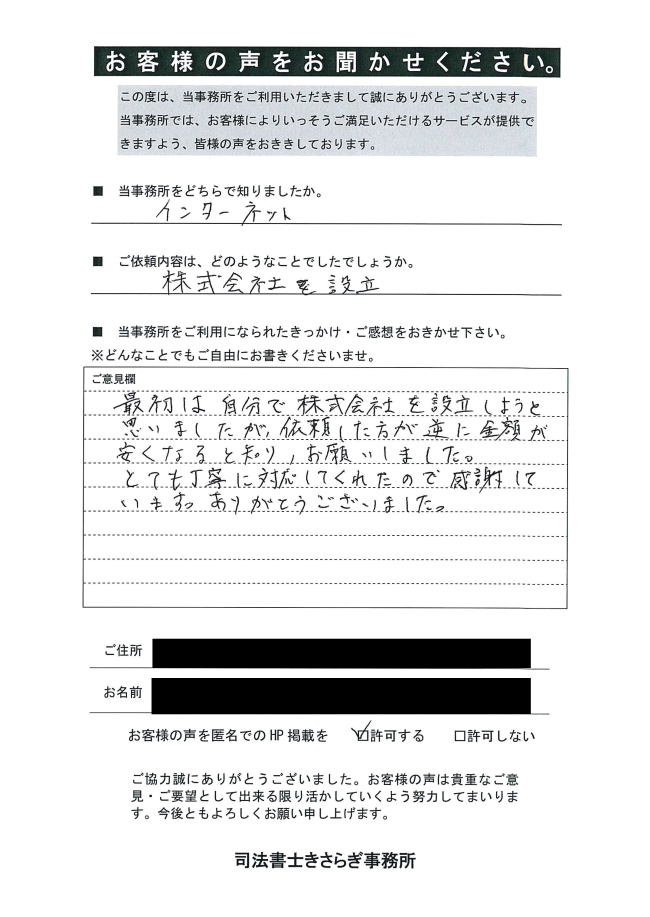 お客様の声をお聞かせください。
この度は、当事務所をご利用いただきまして誠にありがとうございます。
当事務所では、お客様によりいっそうご満足いただけるサービスが提供で
きますよう、皆様の声をおききしております。
■ 当事務所をどちらで知りましたか。
インターネット
■ ご依頼内容は、どのようなことでしたでしょうか。
株式会社を設立
■ 当事務所をご利用になられたきっかけ・ご感想をおきかせ下さい。
※どんなことでもご自由にお書きくださいませ。
ご意見欄
最初は自分で株式会社を設立しようと
思いましたが、依頼した方が逆に金額が
安くなると知り、お願いしました。
とても丁寧に対応してくれたので感謝して
います。ありがとうございました。
ご住所
お名前
お客様の声を匿名でのHP掲載を ☑許可する □許可しない
ご協力誠にありがとうございました。お客様の声は貴重なご意
見・ご要望として出来る限り活かしていくよう努力してまいりま
す。今後ともよろしくお願い申し上げます。
司法書士きさらぎ事務所